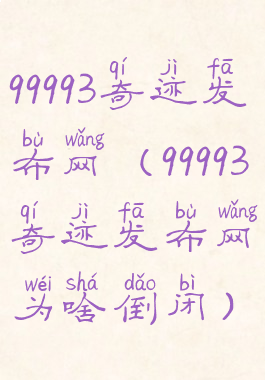 qí jì fā
99993奇迹发
bù wǎng
布网（99993
qí jì fā bù wǎng
奇迹发布网
wéi shá dǎo bì
为啥倒闭）